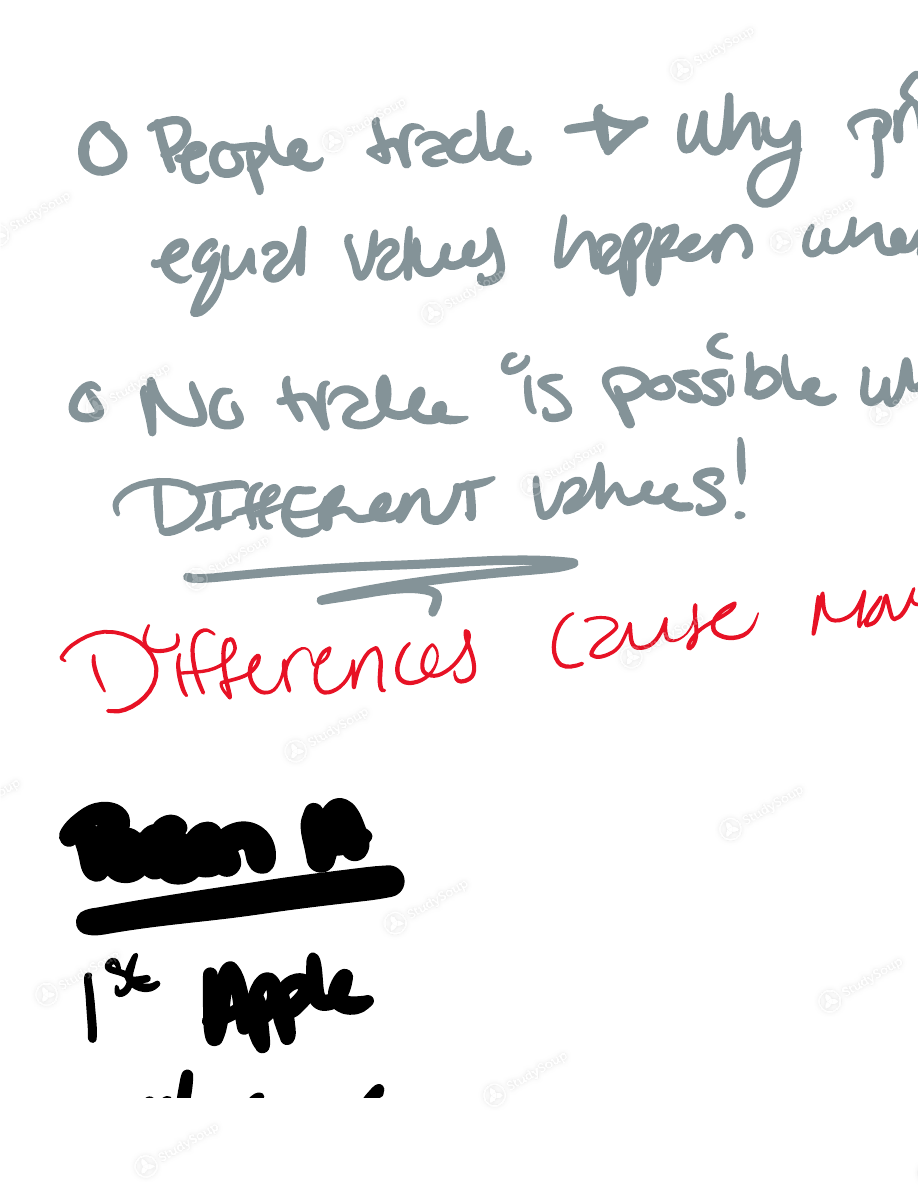 O People trade → why
equal values happen
o No trade is possible
DIFFERENT values!
Differences cause
Person A
1st Apple
StudySoup